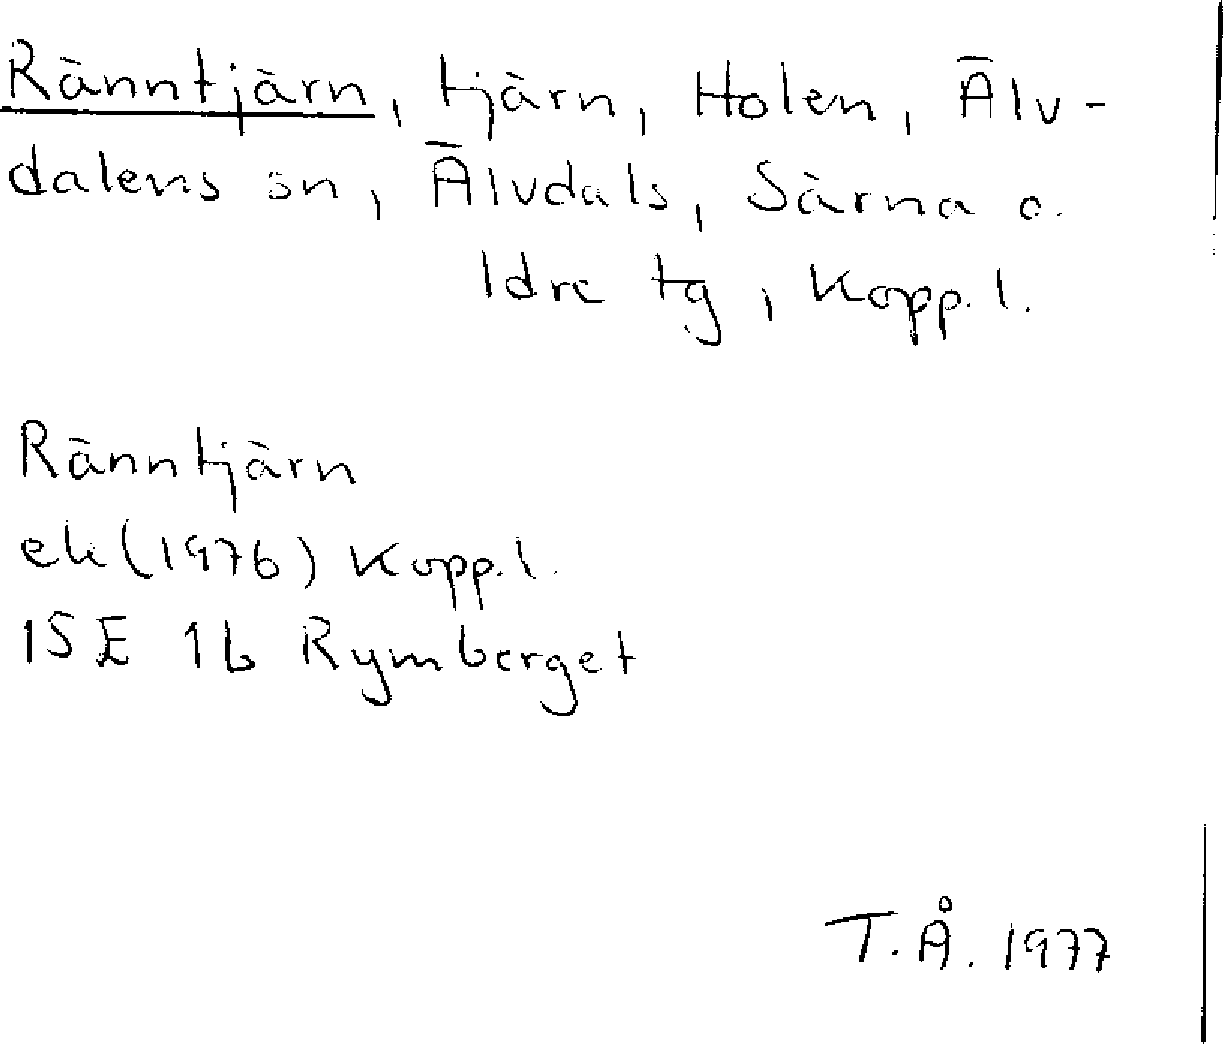 Ränntjärn, tjärn, Holen, Älv-
dalens sn, Älvdals, Särna o.
Idre tg, Kopp. l.
Ränntjärn
ek (1976) Kopp. l.
15E 1b Rymberget
T. Å. 1977